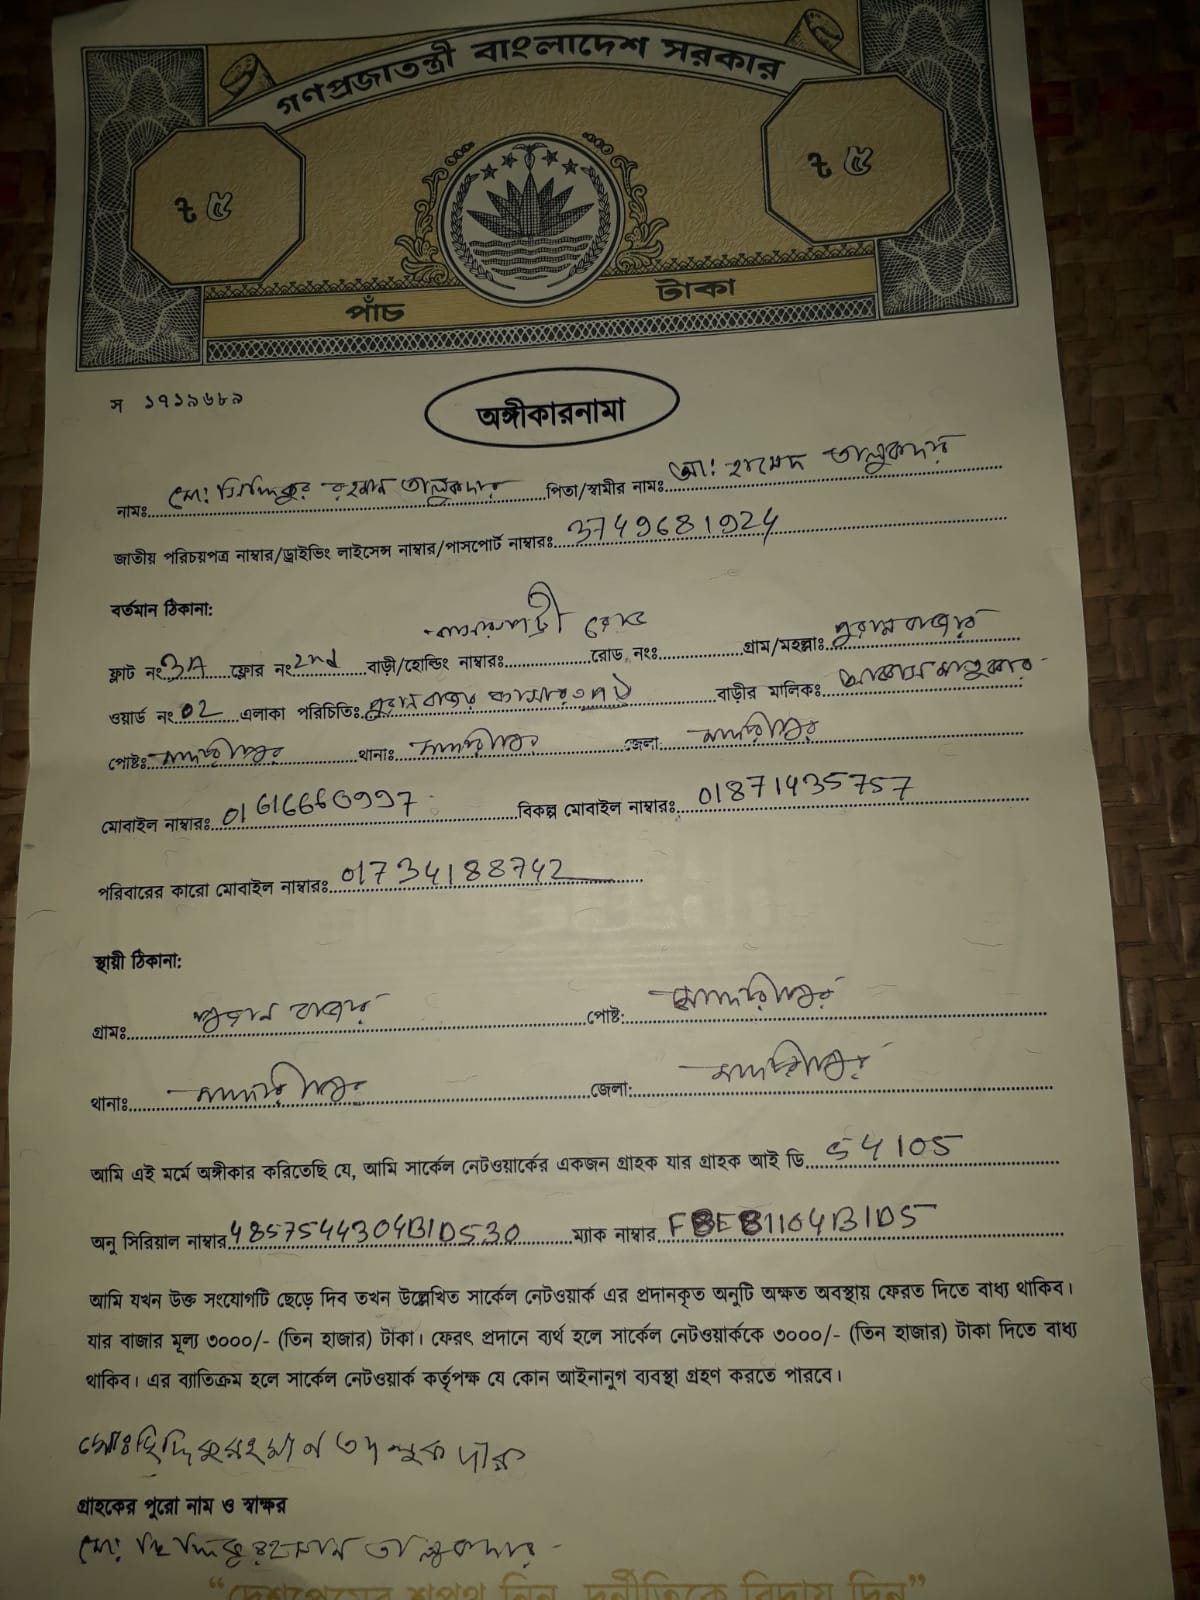 গণপ্রজাতন্ত্রী বাংলাদেশ সরকার
৳ ৫
৳ ৫
পাঁচ টাকা
স ১৭১৯৬৮৯
অঙ্গীকারনামা
নামঃ মো: সিদ্দিকুর রহমান তালুকদার পিতা/স্বামীর নামঃ মো: হামেদ তালুকদার
জাতীয় পরিচয়পত্র নাম্বার/ড্রাইভিং লাইসেন্স নাম্বার/পাসপোর্ট নাম্বারঃ 3749681924
বর্তমান ঠিকানা:
ফ্লাট নং 3A ফ্লোর নং 2nd বাড়ী/হোল্ডিং নাম্বারঃ রোড নংঃ রোড গ্রাম/মহল্লাঃ পুরান বাজার
ওয়ার্ড নং 02 এলাকা পরিচিতিঃ পুরান বাজার বাড়ীর মালিকঃ
পোষ্টঃ মাদারীপুর থানাঃ মাদারীপুর জেলা: মাদারীপুর
মোবাইল নাম্বারঃ 01616660997 বিকল্প মোবাইল নাম্বারঃ 01871435757
পরিবারের কারো মোবাইল নাম্বারঃ 01734188742
স্থায়ী ঠিকানা:
গ্রামঃ পুরান বাজার পোষ্ট: মাদারীপুর
থানাঃ মাদারীপুর জেলা: মাদারীপুর
আমি এই মর্মে অঙ্গীকার করিতেছি যে, আমি সার্কেল নেটওয়ার্কের একজন গ্রাহক যার গ্রাহক আই ডি S4105
অনু সিরিয়াল নাম্বার 4857544304B1D530 ম্যাক নাম্বার F8E81104B1D5
আমি যখন উক্ত সংযোগটি ছেড়ে দিব তখন উল্লেখিত সার্কেল নেটওয়ার্ক এর প্রদানকৃত অনুটি অক্ষত অবস্থায় ফেরত দিতে বাধ্য থাকিব।
যার বাজার মূল্য ৩০০০/- (তিন হাজার) টাকা। ফেরৎ প্রদানে ব্যর্থ হলে সার্কেল নেটওয়ার্ককে ৩০০০/- (তিন হাজার) টাকা দিতে বাধ্য
থাকিব। এর ব্যাতিক্রম হলে সার্কেল নেটওয়ার্ক কর্তৃপক্ষ যে কোন আইনানুগ ব্যবস্থা গ্রহণ করতে পারবে।
মোঃ ছিদ্দিকুর রহমান তালুকদার
গ্রাহকের পুরো নাম ও স্বাক্ষর
মো: ছিদ্দিকুর রহমান তালুকদার
“দেশপ্রেমের শপথ নিন, দুর্নীতিকে বিদায় দিন”